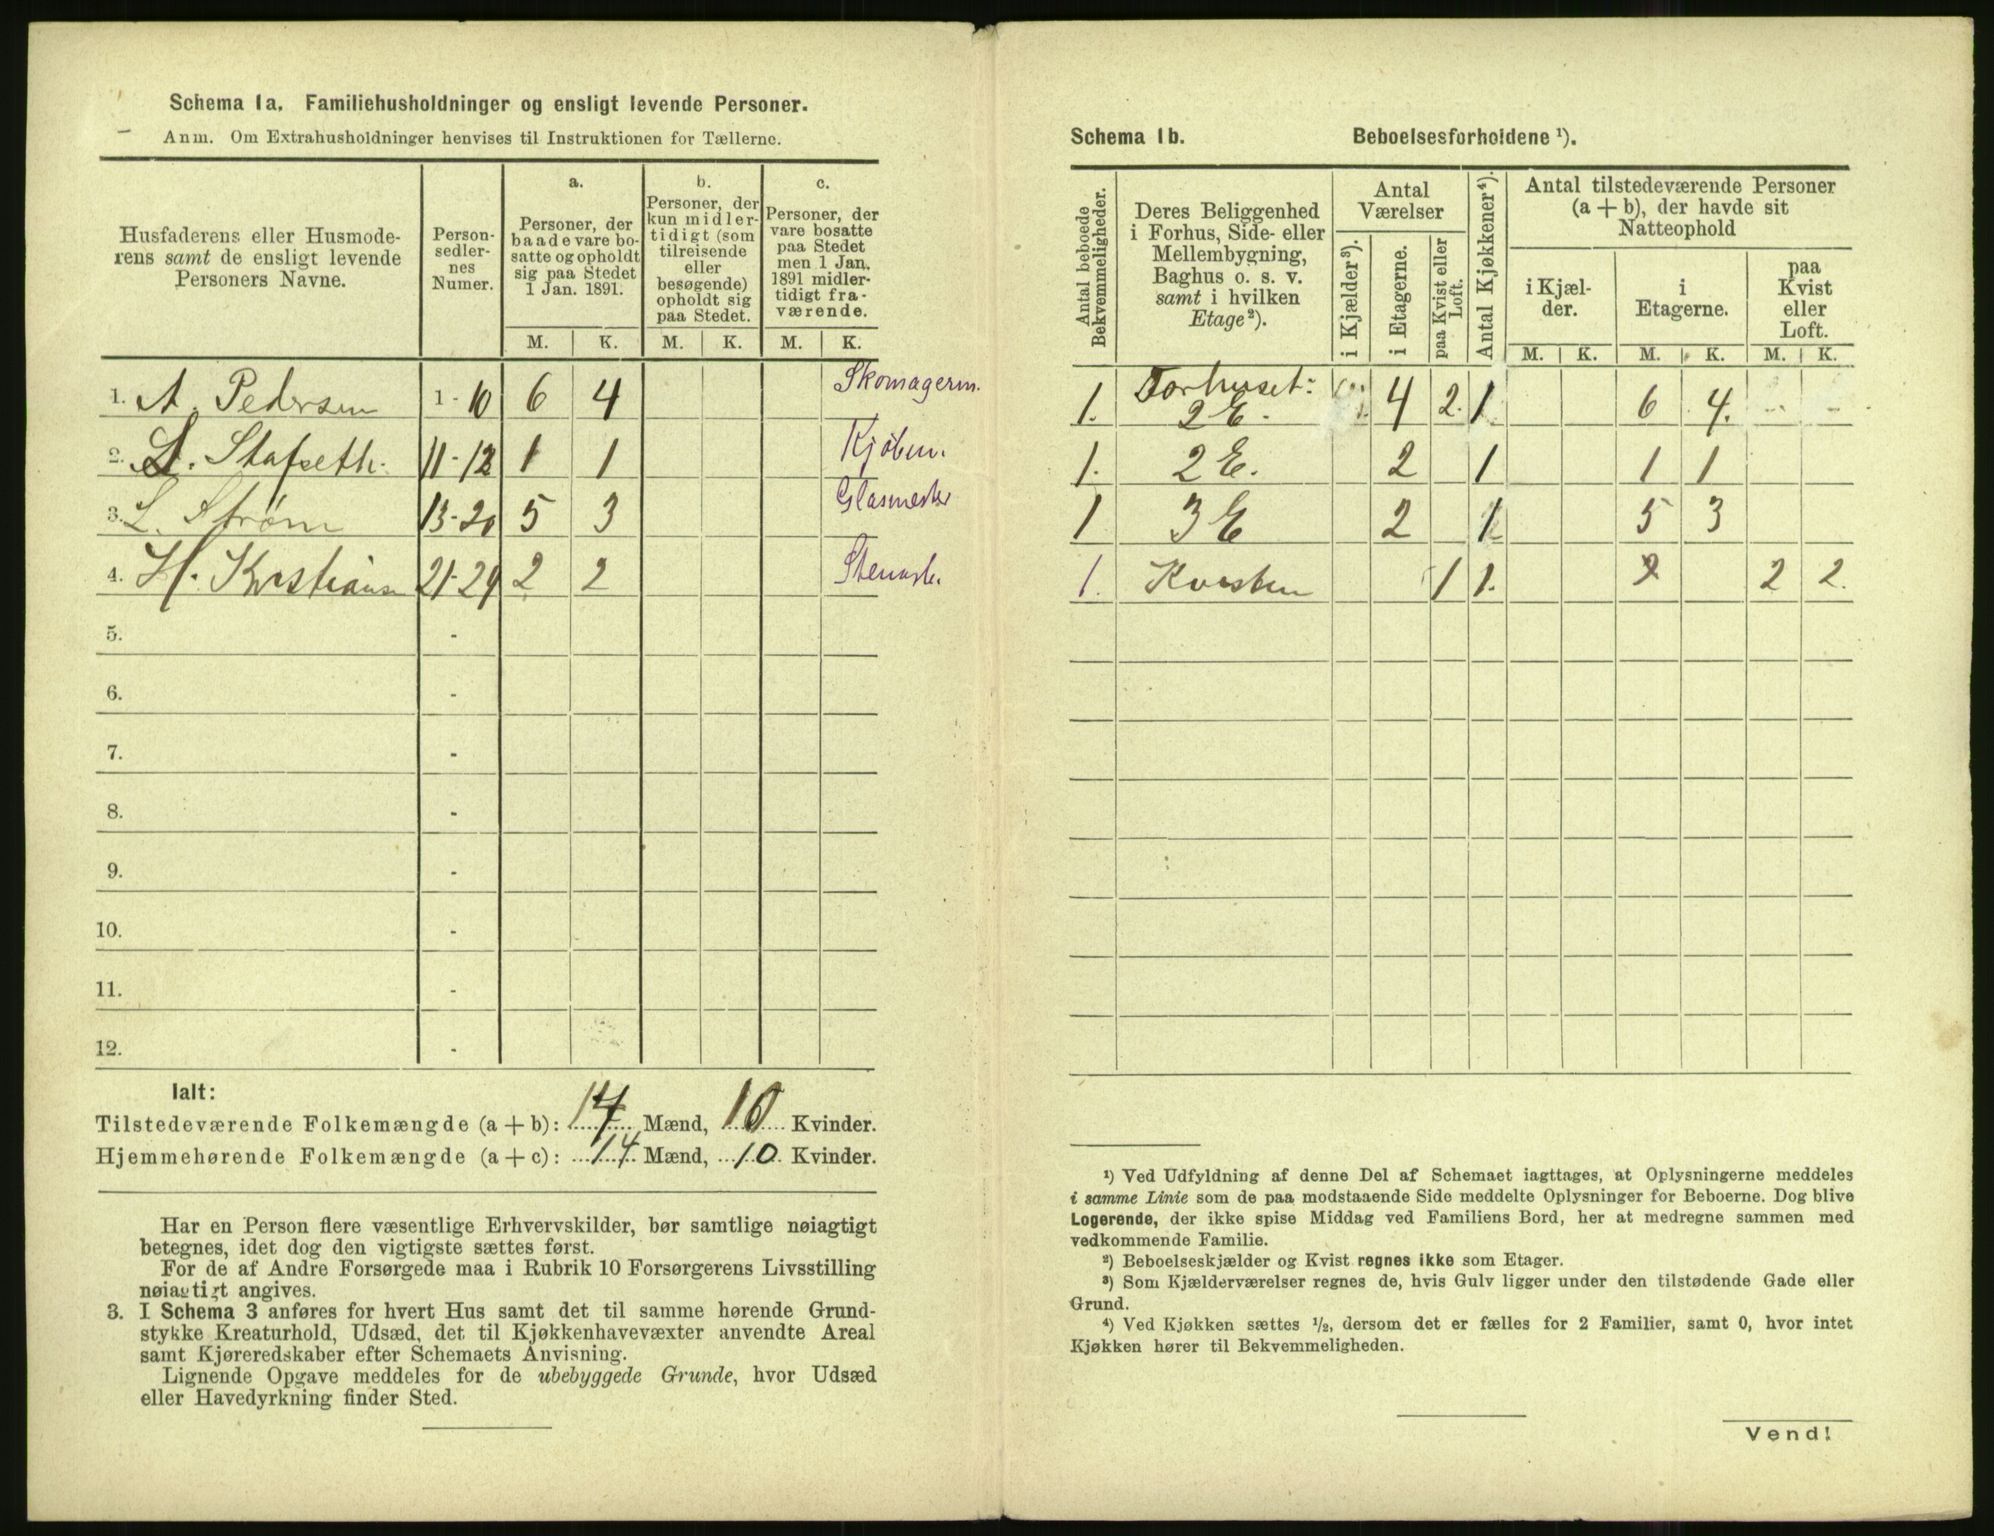 Schema 1a. Familiehusholdninger og ensligt levende Personer.
Anm. Om Extrahusholdninger henvises til Instruktionen for Tællerne.
Husfaderens eller Husmode-
rens samt de ensligt levende
Personers Navne.
Person-
sedler-
nes
Numer.
a.
Personer, der
baade vare bo-
satte og opholdt
sig paa Stedet
1 Jan. 1891.
b.
Personer, der
kun midler-
tidigt (som
tilreisende
eller
besøgende)
opholdt sig
paa Stedet.
c.
Personer, der
vare bosatte
paa Stedet
men 1 Jan.
1891 midler-
tidigt fra-
værende.
M. K. M. K. M. K.
1. A. Pedersen 1-10 6 4 Skomagerm.
2. Stafseth. 11-12 1 1 Kjøbm.
3. L. Strøm 13-20 5 3 Glasmester
4. H. Kristians 21-24 2 2
5. -
6. -
7. -
8. -
9. -
10. -
11. -
12. -
Ialt:
Tilstedeværende Folkemængde (a + b): 14 Mænd, 10 Kvinder.
Hjemmehørende Folkemængde (a + c): 14 Mænd, 10 Kvinder.
Har en Person flere væsentlige Erhvervskilder, bør samtlige nøiagtigt
betegnes, idet dog den vigtigste sættes først.
For de af Andre Forsørgede maa i Rubrik 10 Forsørgerens Livsstilling
nøiagtigt angives.
3. I Schema 3 anføres for hvert Hus samt det til samme hørende Grund-
stykke Kreaturhold, Udsæd, det til Kjøkkenhavevæxter anvendte Areal
samt Kjøreredskaber efter Schemaets Anvisning.
Lignende Opgave meddeles for de ubebyggede Grunde, hvor Udsæd
eller Havedyrkning finder Sted.
Schema 1b. Beboelsesforholdene ¹).
Antal beboede
Bekvemmeligheder.
Deres Beliggenhed
i Forhus, Side- eller
Mellembygning,
Baghus o. s. v.
samt i hvilken
Etage²).
Antal
Værelser
i Kjælder³).
i Etagerne.
paa Kvist eller
Loft.
Antal Kjøkkener⁴).
Antal tilstedeværende Personer
(a + b), der havde sit
Natteophold
i Kjæl-
der.
i
Etagerne.
paa
Kvist
eller
Loft.
M. K. M. K. M. K.
1. Forhuset: 2 E. 4 2. 1 6 4.
1. 2 E. 2 1 1 1
1 3 E 2 1 5 3
1. Kvisten 1 1. 2 2 2.
¹) Ved Udfyldning af denne Del af Schemaet iagttages, at Oplysningerne meddeles
i samme Linie som de paa modstaaende Side meddelte Oplysninger for Beboerne. Dog blive
Logerende, der ikke spise Middag ved Familiens Bord, her at medregne sammen med
vedkommende Familie.
²) Beboelseskjælder og Kvist regnes ikke som Etager.
³) Som Kjælderværelser regnes de, hvis Gulv ligger under den tilstødende Gade eller
Grund.
⁴) Ved Kjøkken sættes ¹/₂, dersom det er fælles for 2 Familier, samt 0, hvor intet
Kjøkken hører til Bekvemmeligheden.
Vend!